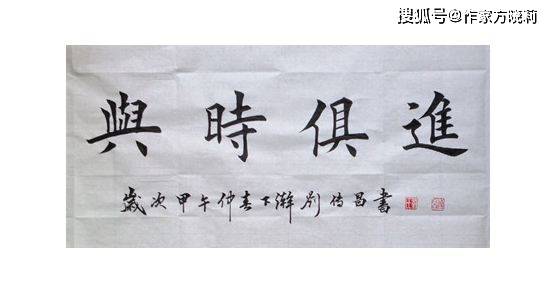 搜狐号@作家方晓莉
與時俱進
歲次甲午仲春下澣刘传昌書